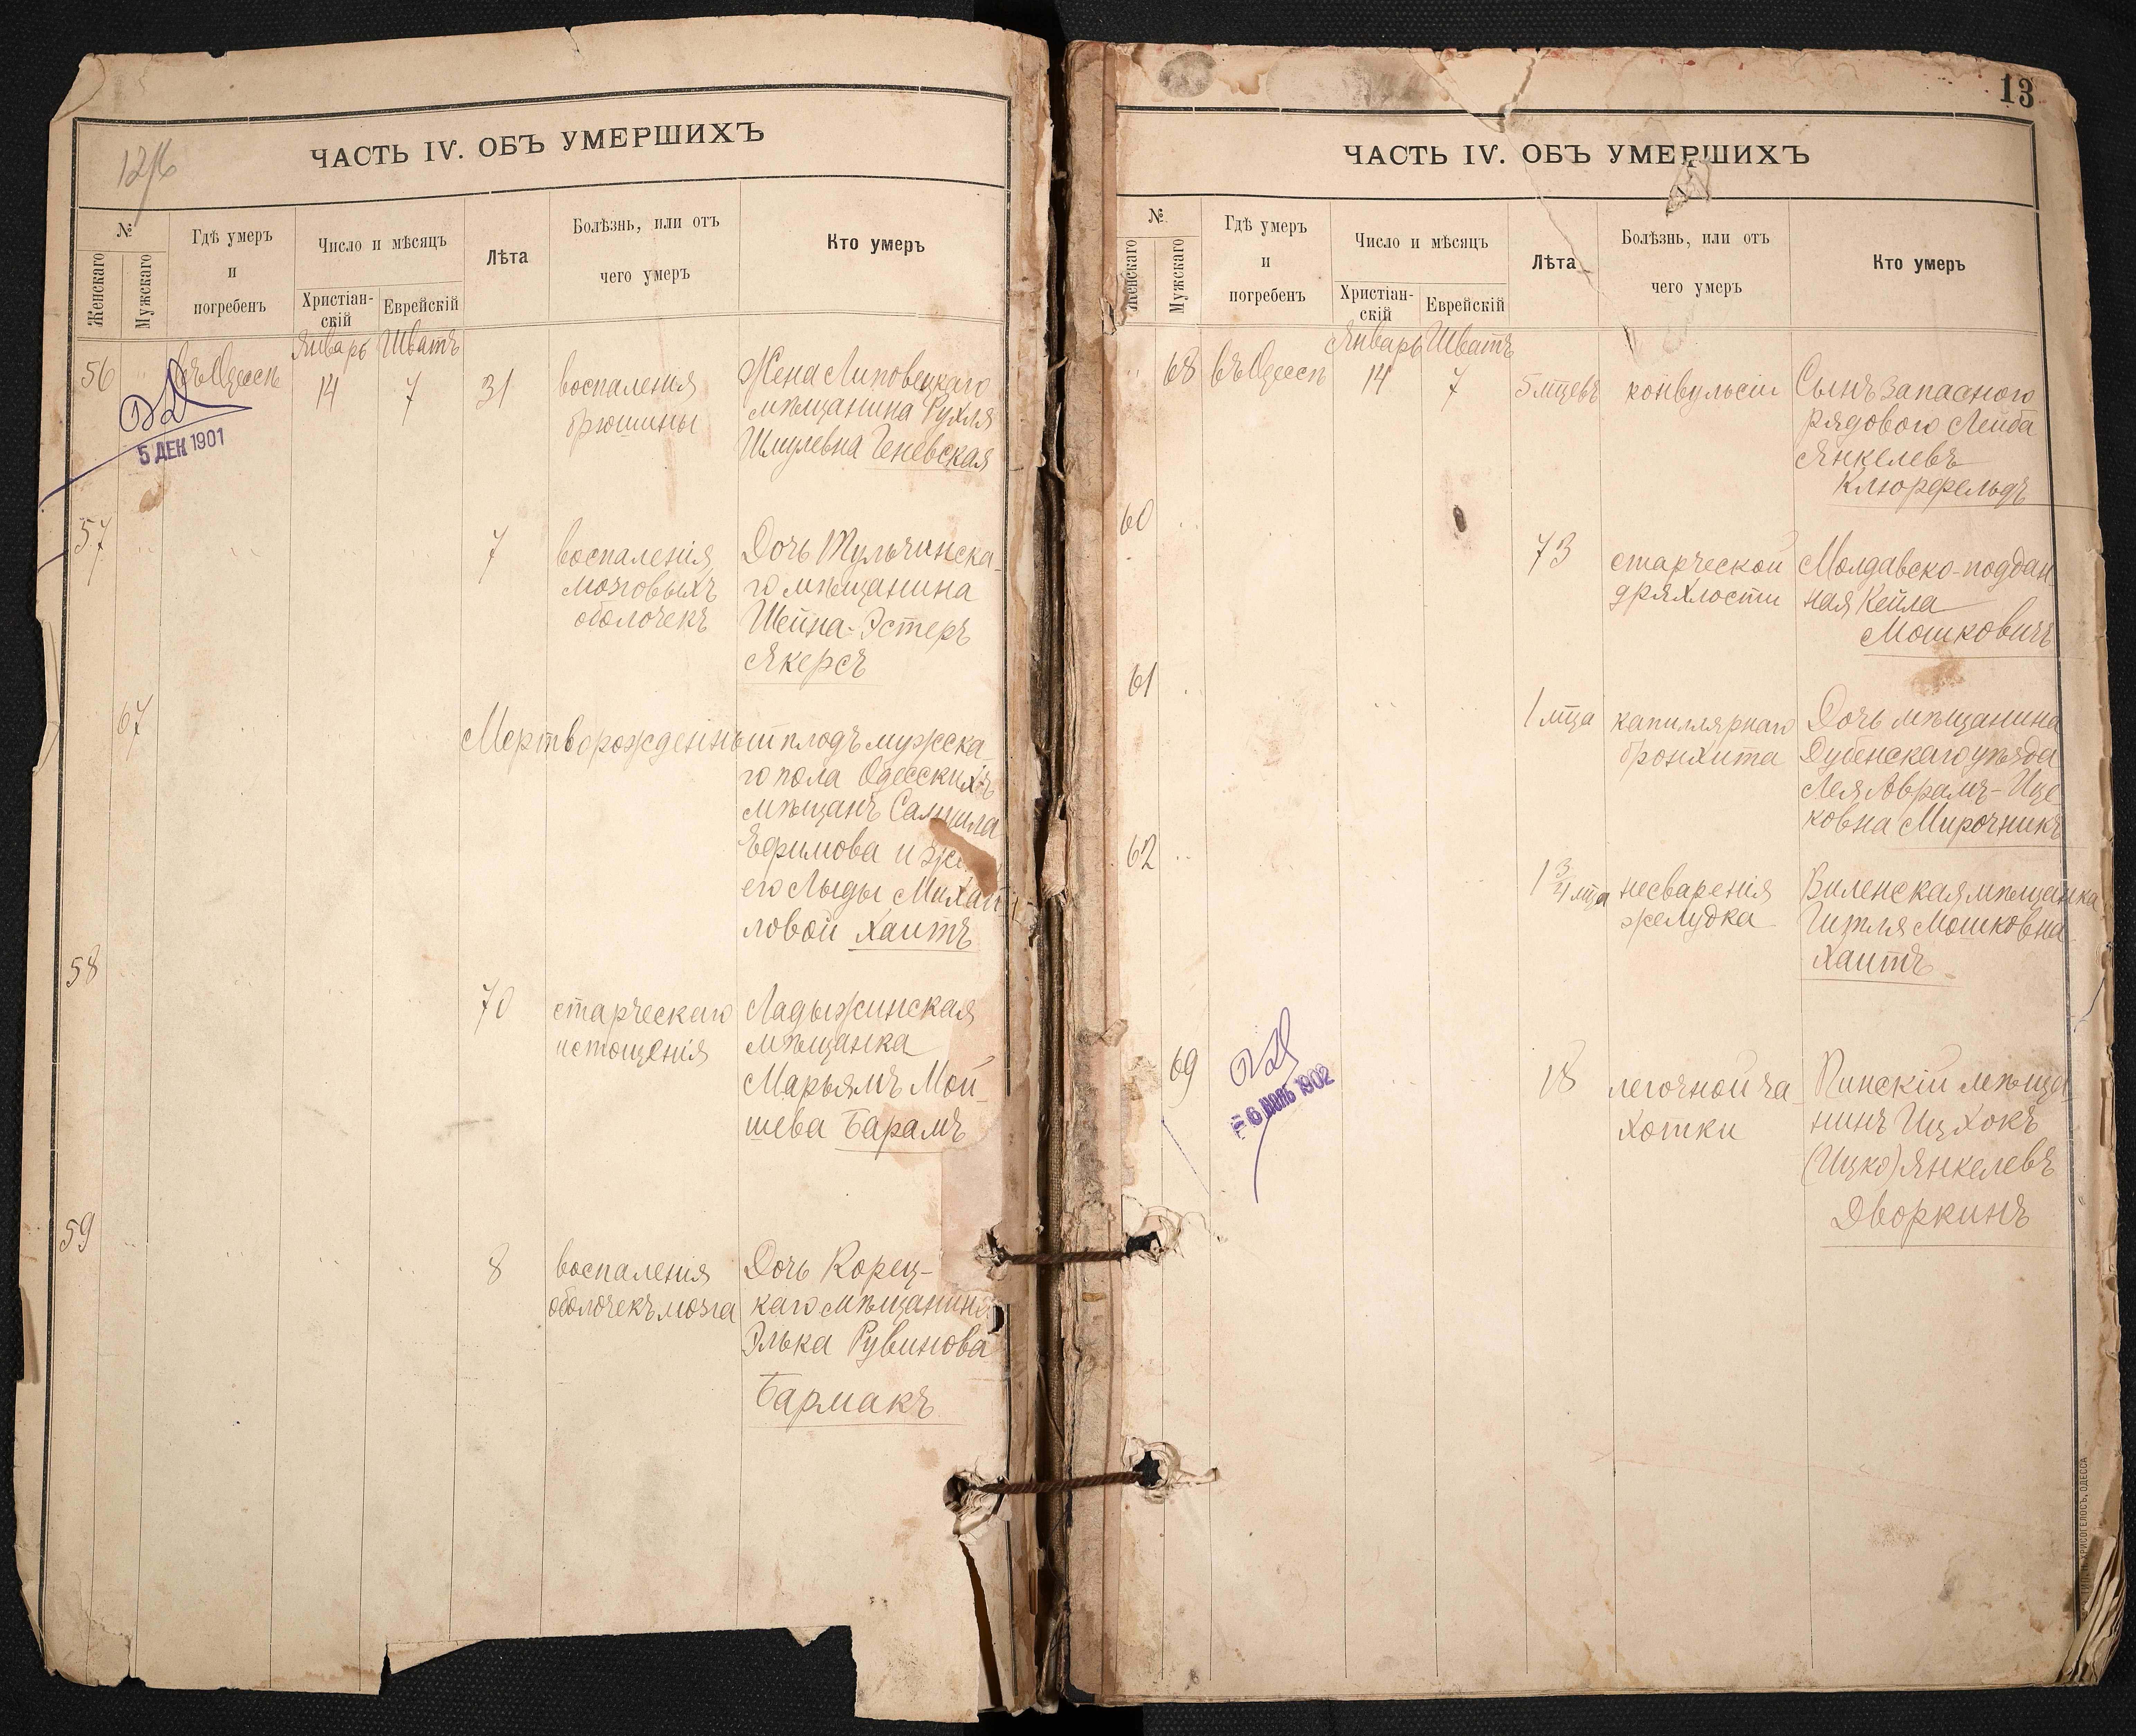 12/6
ЧАСТЬ IV. ОБЪ УМЕРШИХЪ
№
Женскаго
Мужскаго
Гдѣ умеръ
и
погребенъ
Число и мѣсяцъ
Христіан-
скій
Еврейскій
Лѣта
Болѣзнь, или отъ
чего умеръ
Кто умеръ
Январь Шватъ
56 въ Одессѣ 14 7 31
воспаления
брюшины
Жена Липовецкаго
мѣщанина Рухля
Шмулевна Геневская
5 ДЕК 1901
57 7
воспаленія
мозговыхъ
оболочекъ
Дочь Тульчинска-
го мѣщанина
Шейна-Эстеръ
Якерсъ
67
Мертворожденный плодъ мужска-
го пола Одесскихъ
мѣщанъ Самуила
Ефимова и
его Лыды Михаи-
ловой Хаитъ
58 70
старческаго
истощенія
Ладыжинская
мѣщанка
Марьямъ Мой-
шева Барамъ
59 8
воспаленія
оболочекъ мозга
Дочь Корец-
каго мѣщанина
Элька Рувинова
Бармакъ
13
ЧАСТЬ IV. ОБЪ УМЕРШИХЪ
№
Женскаго
Мужскаго
Гдѣ умеръ
и
погребенъ
Число и мѣсяцъ
Христіан-
скій
Еврейскій
Лѣта
Болѣзнь, или отъ
чего умеръ
Кто умеръ
Январь Шватъ
68 въ Одессѣ 14 7 5 мцевъ конвульсіи
Сынъ запасного
рядового Лейба
Янкелевъ
Клюрфельдъ
60 73
старческой
дряхлости
Молдавско-поддан
ная Кейла
Мошковичъ
61 1 мца
капиллярнаго
бронхита
Дочь мѣщанина
Дубенскаго уѣзда
Лея Аврамъ-Ице
ковна Мирочникъ
62 1 3/4 мца
несваренія
желудка
Виленская мѣщанка
Гитля Мошковна
Хаитъ
69 18
легочной ча-
хотки
Пинскій мѣща-
нинъ Ицхокъ
(Ицко) Янкелевъ
Дворкинъ
6 1902
ХРИСОГЕЛОСЪ, ОДЕССА